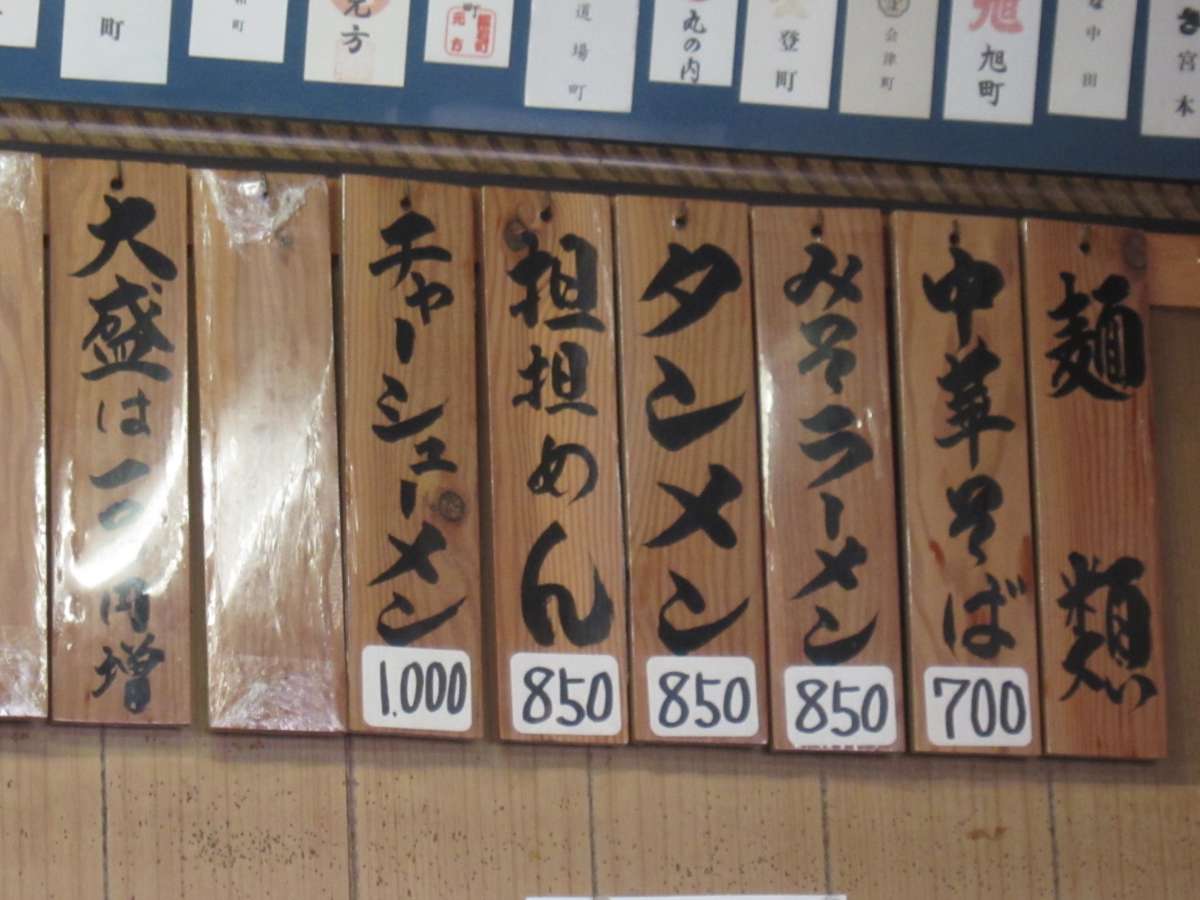 元方
道場町
丸の内
登町
会津町
旭町
中田
宮本
麺類
中華そば
700
みそラーメン
850
タンメン
850
担担めん
850
チャーシューメン
1.000
大盛は一〇〇円増